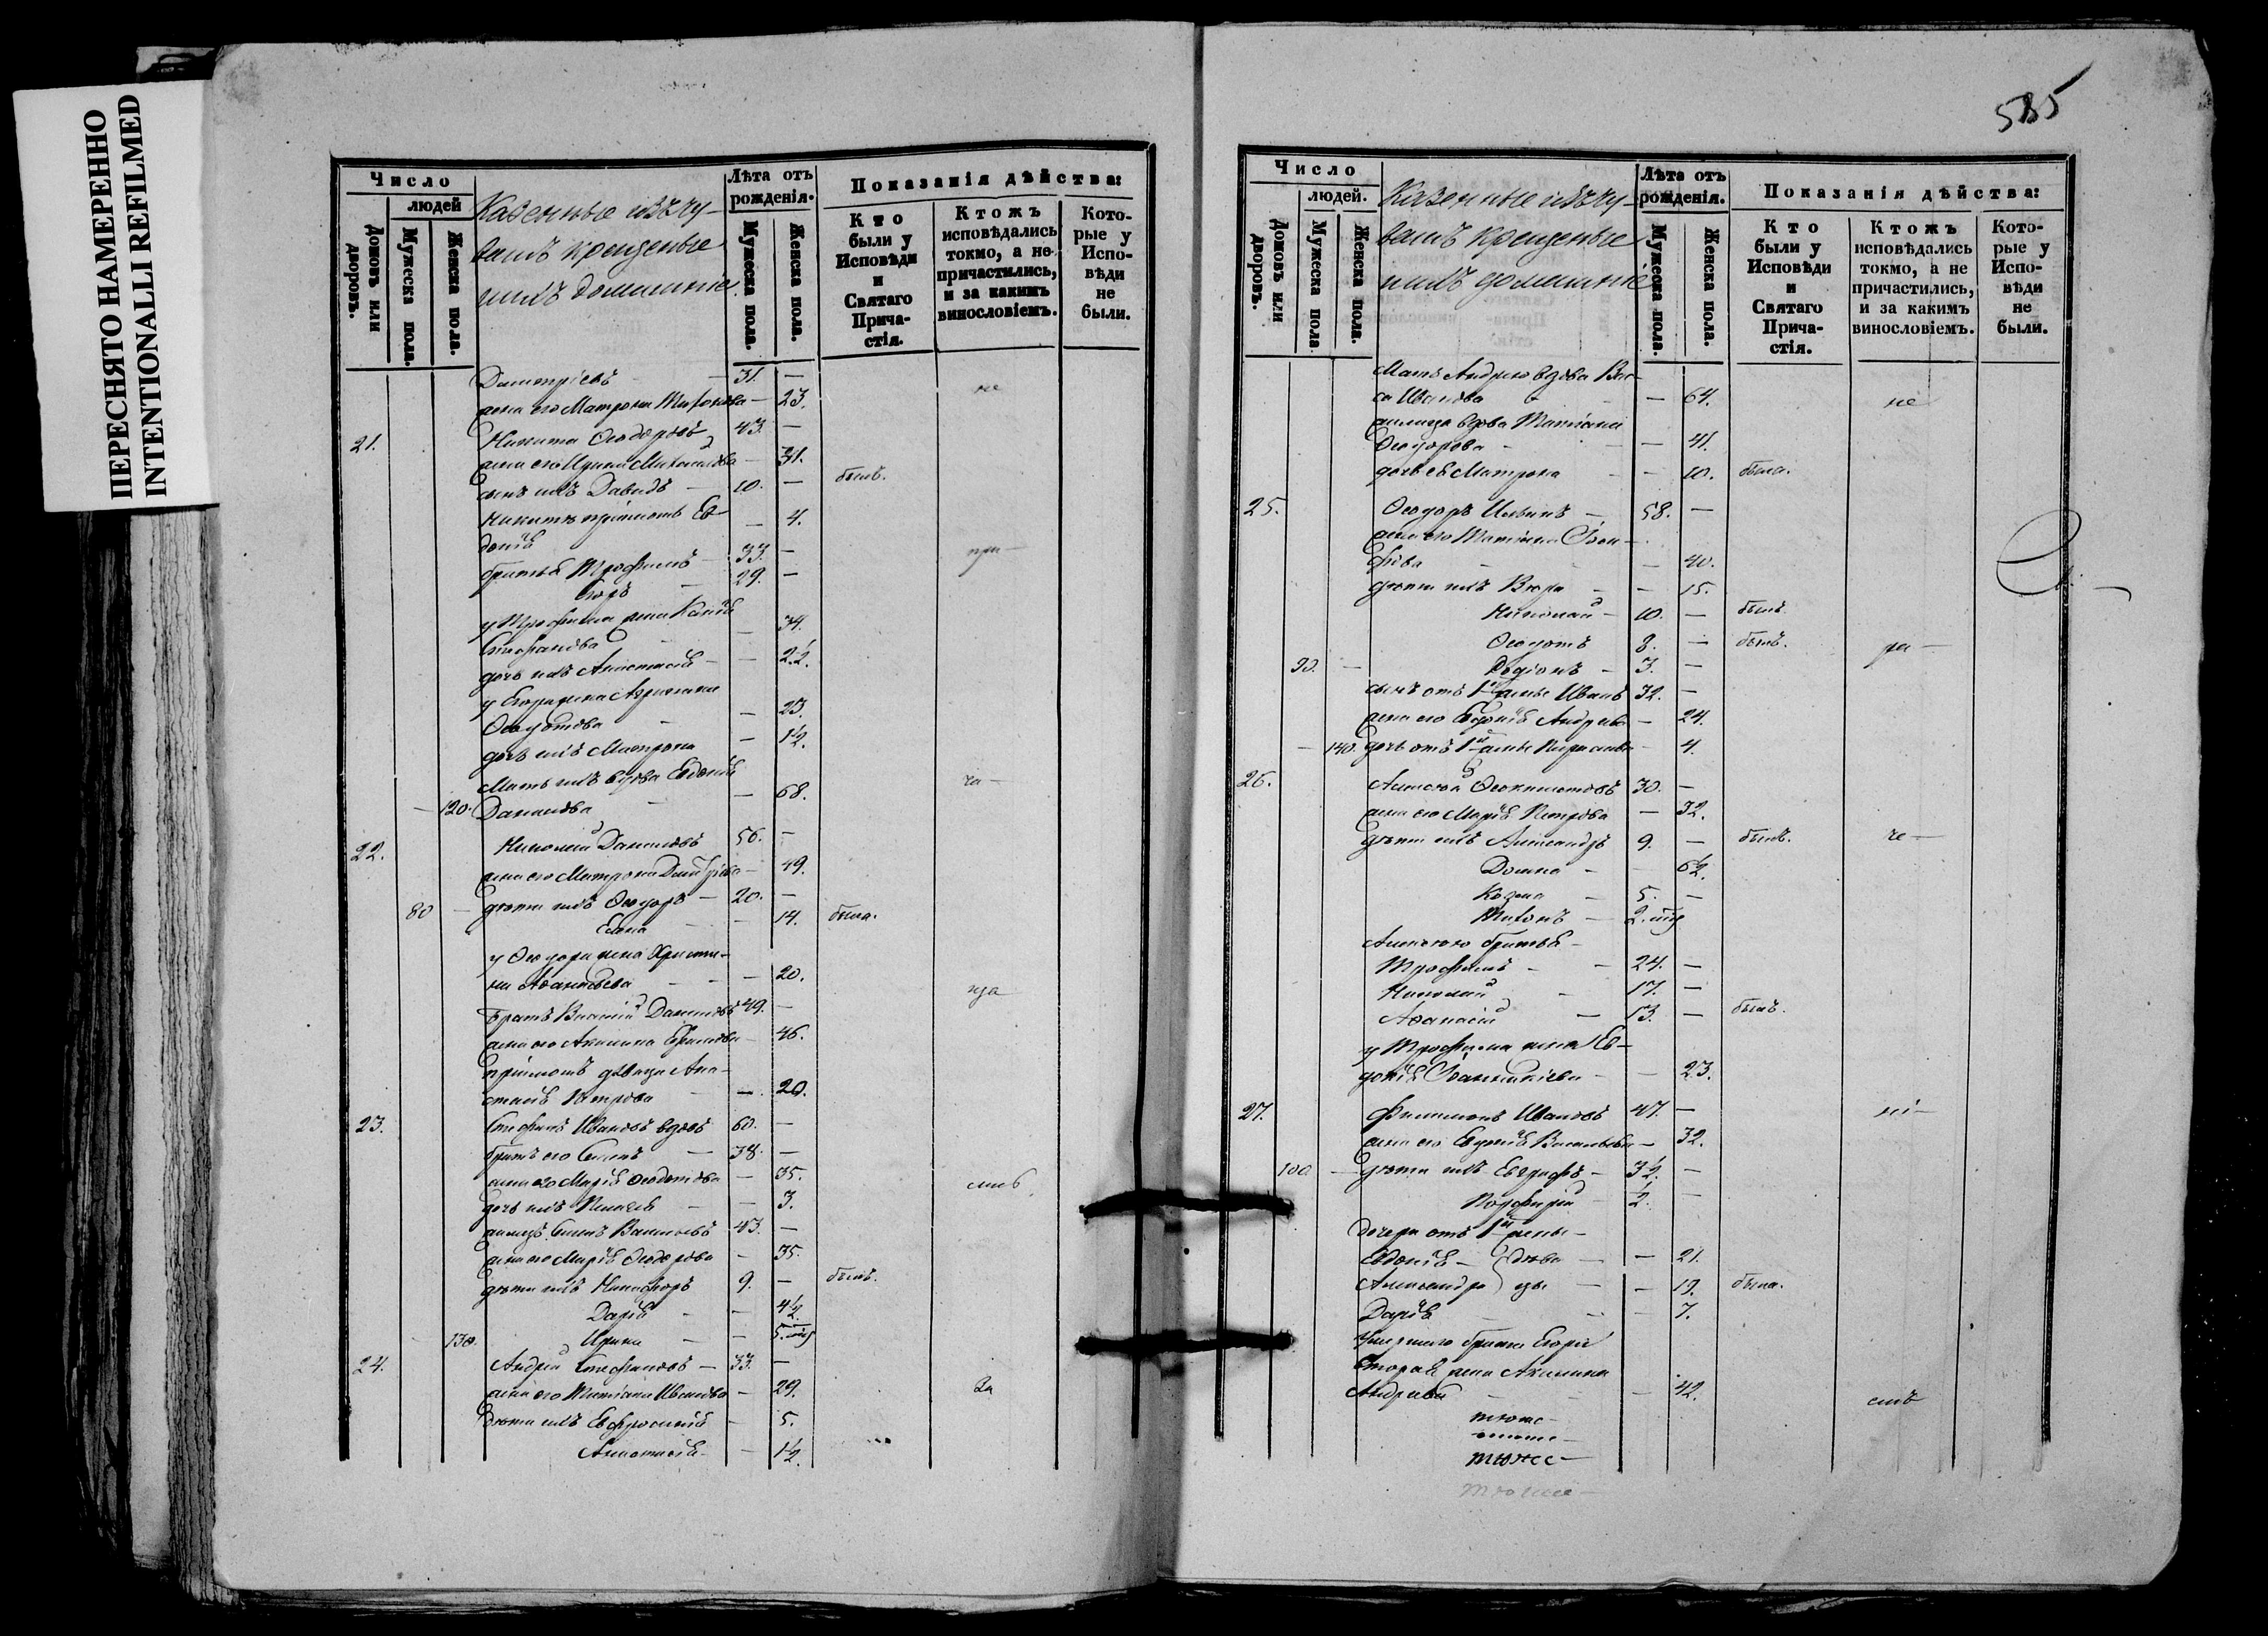 ПЕРЕСНЯТО НАМЕРЕННО
INTENTIONALLI REFILMED
Число
людей
Домовъ или дворовъ.
Мужеска пола.
Женска пола.
Казенные изъ чу-
вашъ крещеные
и ихъ домашніе
Лѣта отъ рожденія.
Мужеска пола.
Женска пола.
Показанія дѣйства:
Кто были у Исповѣди и Святаго Прича-стія.
Ктожъ исповѣдались токмо, а не причастились, и за какимъ винословіемъ.
Кото-рые у Испо-вѣди не были.
Димитріевъ — 31. —
жена его Матрона — 23. не
21. Никита Ѳеодоровъ 43. —
жена его Ирина Михайлова — 31.
сынъ ихъ Давидъ — 10. — былъ.
Никиты пріемышъ Ев- — 4.
докія
братья Трофимъ — 33. — при—
Егоръ 29. —
у Трофима жена
Стефанова — 34.
дочь ихъ Анастасія — — 2 1/2.
у Егора жена
Ѳеодотова — — 23.
дочь ихъ Матрона — 1 1/2.
Мать ихъ вдова Евдокія ча—
— 120. Данилова — — 68.
22. Николай Даниловъ 56. —
жена его Матрона — 49.
80 — дѣти ихъ Ѳеодоръ — 20. —
Елена — — 14. была.
у Ѳеодора жена Христи-
на Аѳанасьева — — 20.
братъ Василій Даниловъ 49. — ща
жена его Акилина — 46.
пріемышъ дѣвица Ана-
стасія Петрова — — 20.
23. Стефанъ Ивановъ вдовъ 60. —
братъ его Семенъ — 38. —
жена его Марія Ѳеодотова — 35.
дочь ихъ Пелагея — — 3.
Васильевъ 43. —
жена его Марія Ѳеодорова — 35.
дѣти ихъ Никифоръ 9. — былъ.
Дарія — — 4 1/2
— 130. Ирина — — 5.
24. Андрей Стефановъ — 33. —
жена его Татіана Иванова — 29. за
дѣти ихъ Евфросинія — 5.
Анастасія — — 1 1/2.
585
Число
людей.
Домовъ или дворовъ.
Мужеска пола
Женска пола.
Казенные изъ чу-
вашъ крещеные
и ихъ домашніе
Лѣта отъ рожденія.
Мужеска пола.
Женска пола.
Показанія дѣйства:
Кто были у Исповѣди и Святаго Прича-стія.
Ктожъ исповѣдались токмо, а не причастились, и за какимъ винословіемъ.
Кото-рые у Испо-вѣди не были.
Мать Андрею вдова
Иванова — 64. не
вдова Татіана
Ѳеодорова — — 41.
дочь её Матрона — — 10. была.
25. Ѳеодоръ Ильинъ — 58. —
жена его Татіана
— — 40.
дѣти ихъ Вѣра — — 15.
Николай — 10. — былъ
Ѳеодотъ 8. — былъ.
90. — Родіонъ — 3. —
сынъ отъ 1й жены Иванъ 32. —
жена его Евдокія Андреева — 24.
— 140. дочь отъ 1й жены — 4.
26. Алексѣй Ѳеоктистовъ 30. —
жена его Марія Петрова — 32.
дѣти ихъ Александръ 9. — былъ. че—
Домна — 6 1/2.
Козма — 5. —
— 2.
Алексѣю братья —
Трофимъ — — 24. —
Николай — 17. —
Аѳанасій — 13. — былъ.
у Трофима жена Ев-
докія — — 23.
27. Филимонъ Ивановъ 47. — ні—
жена его Евдокія Васильева — 32.
100 — дѣти ихъ Евграфъ — 3 1/2. —
Порфирій — 1/2. —
дочери отъ 1й жены —
Евдокія — дѣви- — — 21.
Александра цы — — 19. была.
Дарія — — 7.
Умершаго брата Егора
вторая жена Акилина
Андреева — — — 42. емъ
тюже—